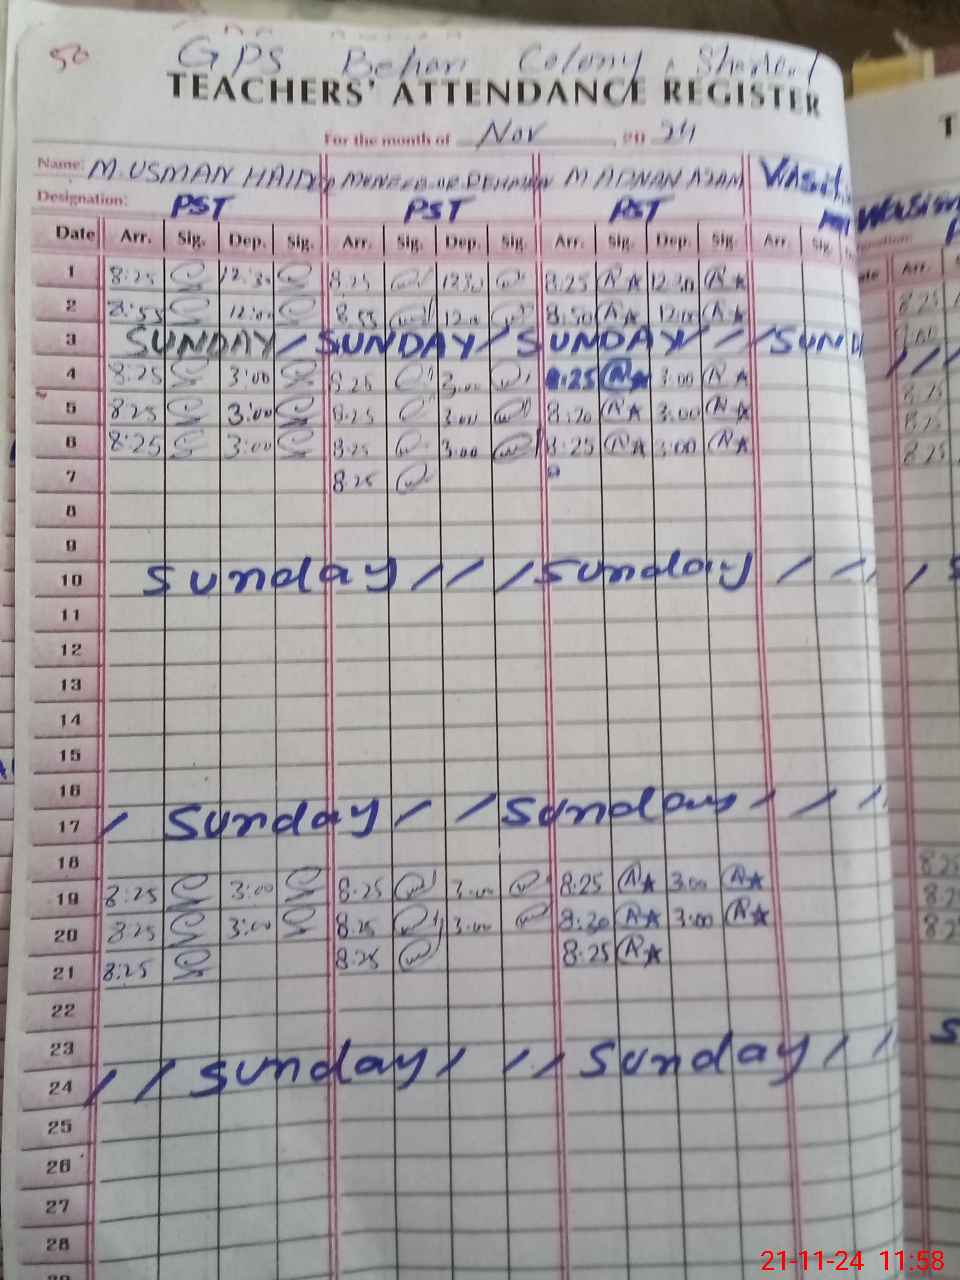 50
GPS Behari Colony
TEACHERS' ATTENDANCE REGISTER
For the month of Nov 2024
Name: M. USMAN HAIDER MUNEEB UR REHMAN M ADNAN AZAM
Designation: PST PST PST
Date Arr. Sig. Dep. Sig. Arr. Sig. Dep. Sig. Arr. Sig. Dep. Sig. Arr. Sig. Arr.
1 8:25 12:30 8:25 1230 8:25 12:30
2 8:55 12:00 8:55 1200 8:50 12:00
3 SUNDAY / SUNDAY / SUNDAY / / SUND
4 8:25 3:00 8:25 3:00 8:25 3:00
5 825 3:00 8:25 3:00 8:20 3:00
6 8:25 3:00 8:25 3:00 8:25 3:00
7 8:25
8
9
10 Sunday / / / Sunday / / /
11
12
13
14
15
16
17 / Sunday / / Sunday / / /
18
19 8:25 3:00 8:25 3:00 8:25 3:00
20 8:25 3:00 8:25 3:00 8:20 3:00
21 8:25 8:25 8:25
22
23
24 / / Sunday / / / Sunday / /
25
26
27
28
21-11-24 11:58